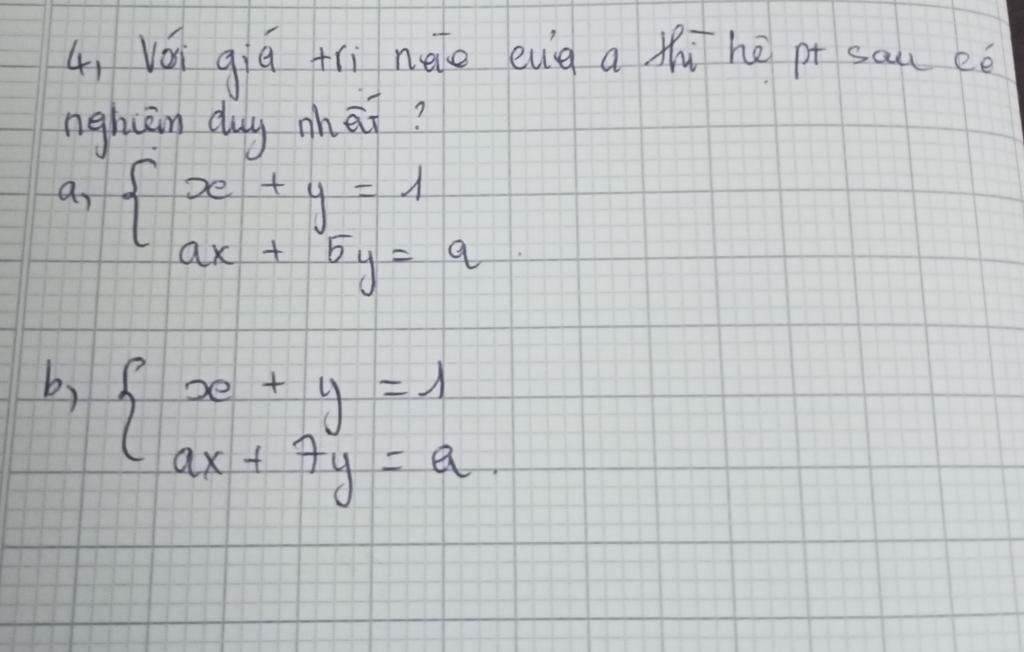 4, Với giá trị nào của a thì hệ pt sau có
nghiệm duy nhất ?
a, { x + y = 1
ax + 5y = a .
b, { x + y = 1
ax + 7y = a .